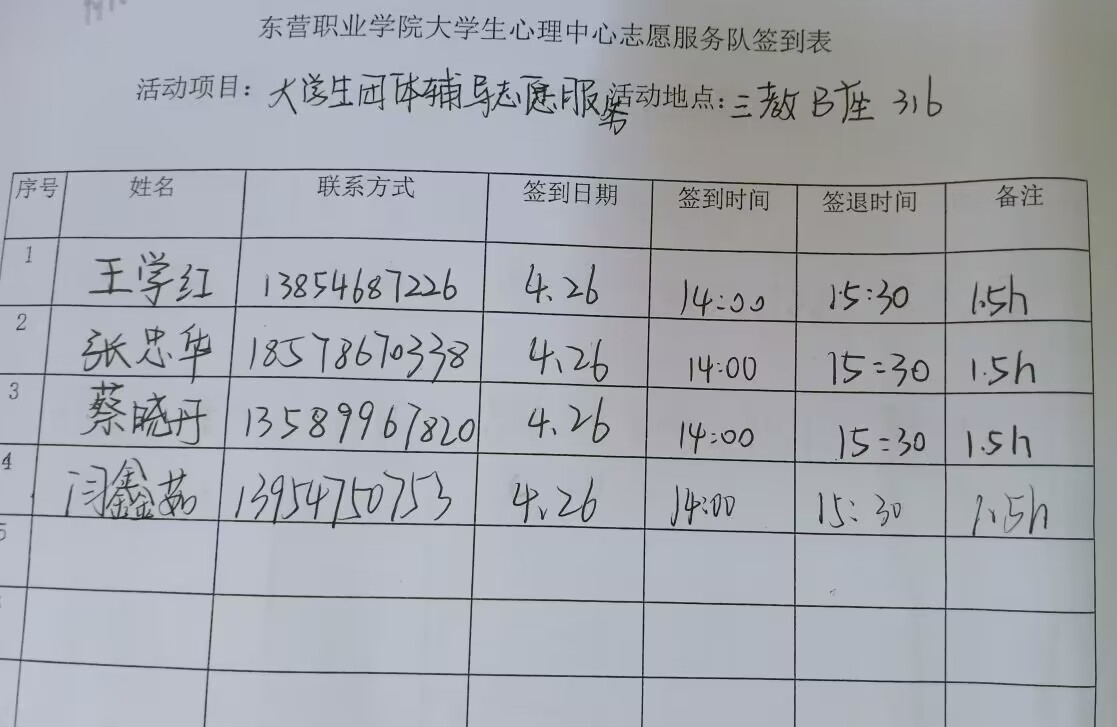 东营职业学院大学生心理中心志愿服务队签到表
活动项目：大学生团体辅导志愿服务 活动地点：三教B座 316
序号 姓名 联系方式 签到日期 签到时间 签退时间 备注
1 王学红 13854687226 4.26 14:00 15:30 1.5h
2 张忠华 18578670338 4.26 14:00 15:30 1.5h
3 蔡晓丹 13589967820 4.26 14:00 15:30 1.5h
4 闫鑫茹 13954750753 4.26 14:00 15:30 1.5h
5